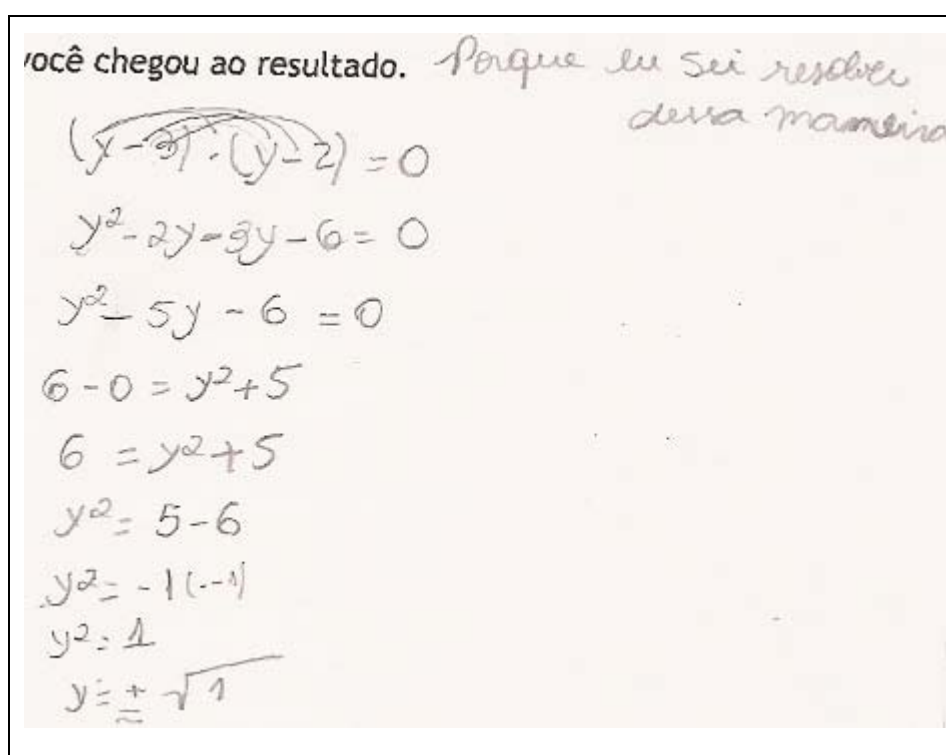 você chegou ao resultado. Porque eu sei resolver
dessa maneira
(y-3).(y-2) = 0
y²-2y-3y-6= 0
y²-5y-6 =0
6-0 = y²+5
6 = y²+5
y²= 5-6
y²= -1(.-1)
y²= 1
y=± √1